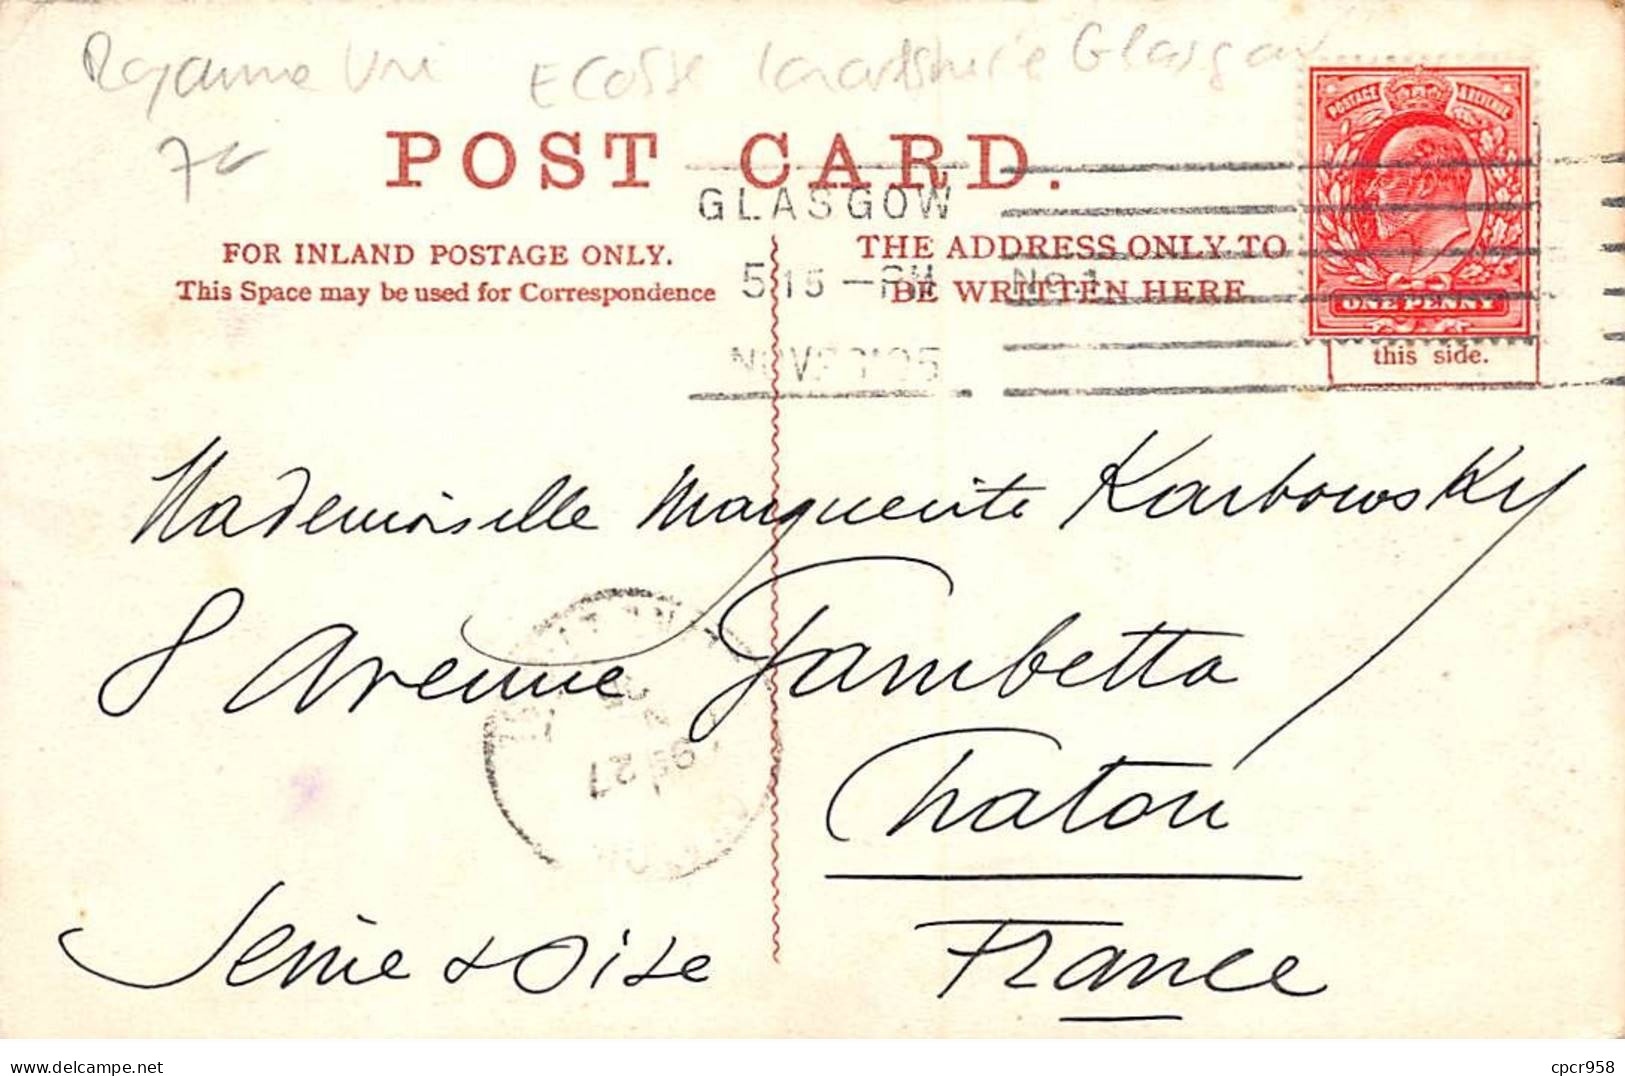 Royaume Uni Ecosse Lanarkshire Glasgow
POST CARD.
GLASGOW
FOR INLAND POSTAGE ONLY.
This Space may be used for Correspondence
THE ADDRESS ONLY TO
BE WRITTEN HERE
5 15 – PM
No 1
NOV
05
POSTAGE & REVENUE
ONE PENNY
this side.
Mademoiselle Marguerite Karbowsky
8 Avenue Gambetta
Chatou
Seine & Oise
France
27
delcampe.net
cpcr958